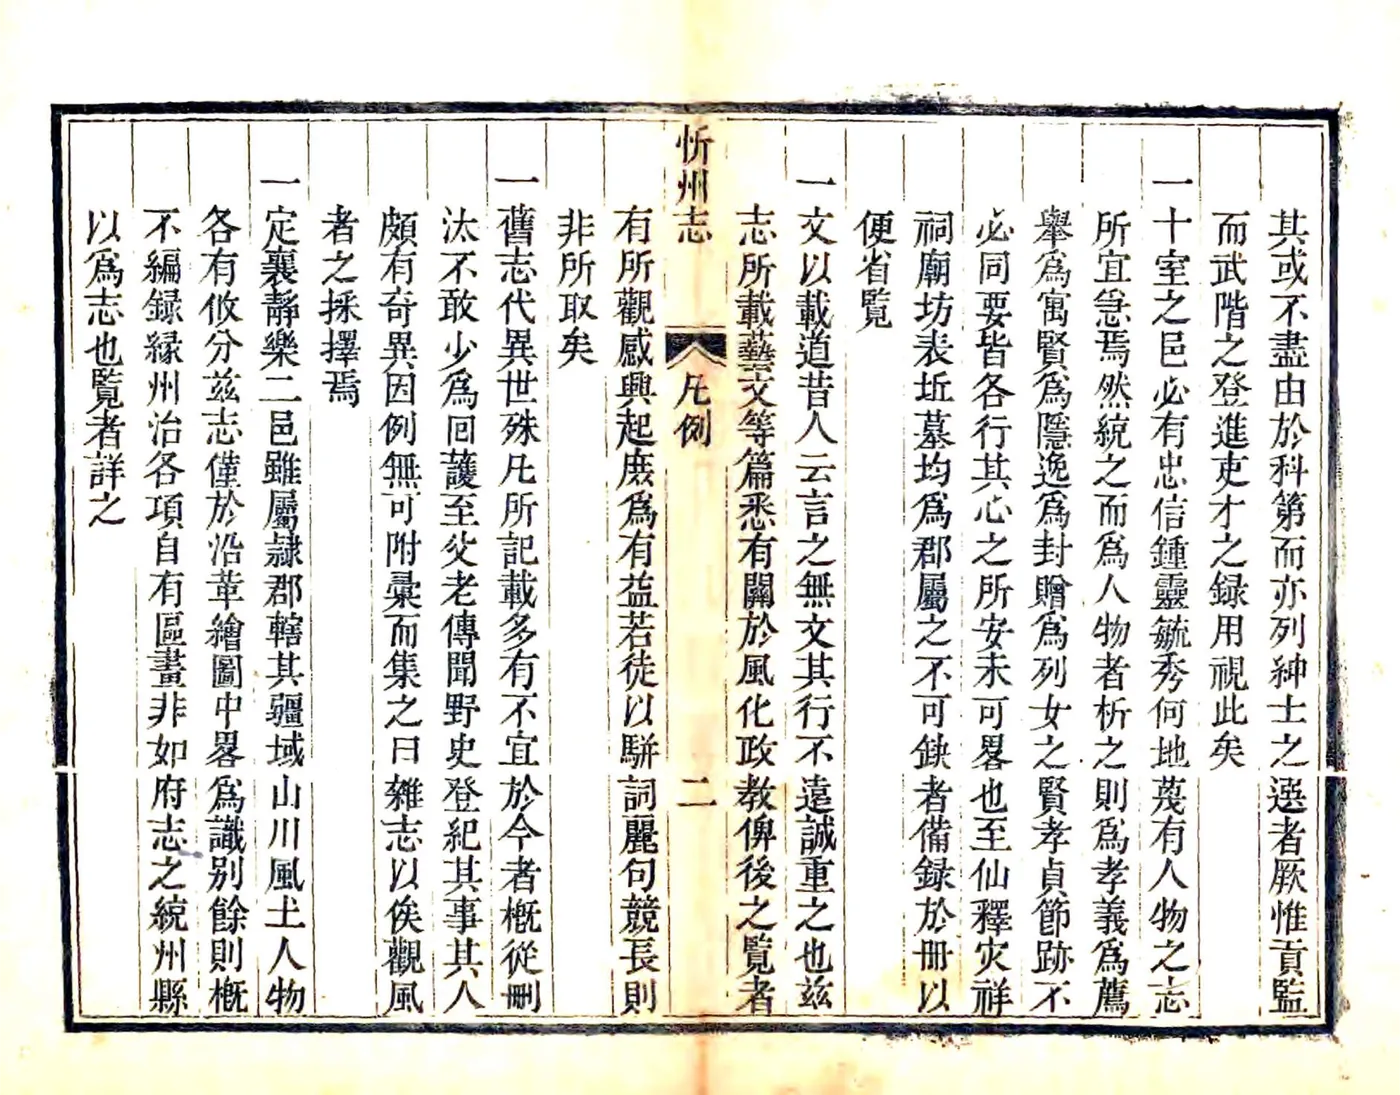 其或不盡由於科第而亦列紳士之選者厥惟貢監
而武階之登進吏才之録用視此矣
一十室之邑必有忠信鍾靈毓秀何地蔑有人物之志
所宜急焉然統之而爲人物者析之則爲孝義爲薦
舉爲寓賢爲隱逸爲封贈爲列女之賢孝貞節跡不
必同要皆各行其心之所安未可畧也至仙釋灾祥
祠廟坊表坵墓均爲郡屬之不可缺者備録於冊以
便省覧
一文以載道昔人云言之無文其行不遠誠重之也兹
志所載藝文等篇悉有關於風化政教俾後之覧者
忻州志
凡例
二
有所觀感興起庶爲有益若徒以駢詞麗句競長則
非所取矣
一舊志代異世殊凡所記載多有不宜於今者槪從刪
汰不敢少爲回護至父老傳聞野史登紀其事其人
頗有奇異因例無可附彙而集之曰雜志以俟觀風
者之採擇焉
一定襄靜樂二邑雖屬隷郡轄其疆域山川風土人物
各有攸分兹志僅於沿革繪圖中畧爲識别餘則槪
不編録緣州治各項自有區畫非如府志之統州縣
以爲志也覧者詳之